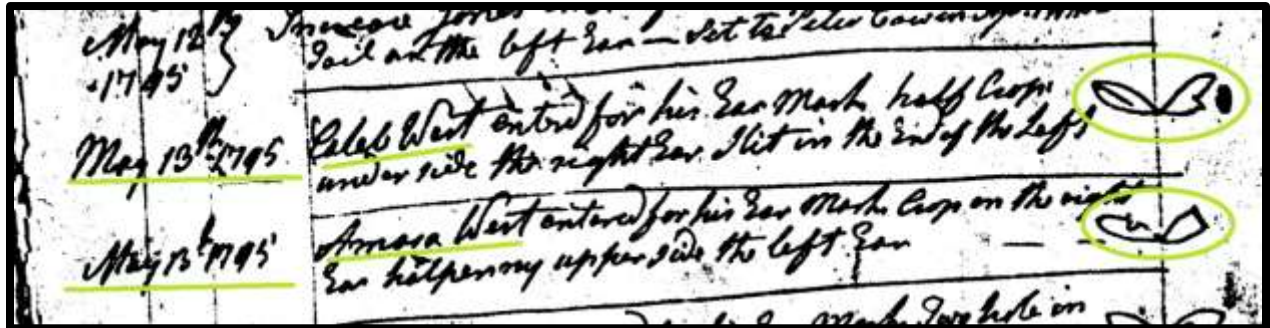 May 12th Increase Jones
1795 Tail on the left Ear — Set to Peter
May 13th 1795 Caleb West entred for his Ear Mark half Crop
under side the right Ear Slit in the End of the Left
May 13th 1795 Amasa West entared for his Ear Mark Crop on the right
Ear halpenny upper side the left Ear
Ear Mark Two hole in